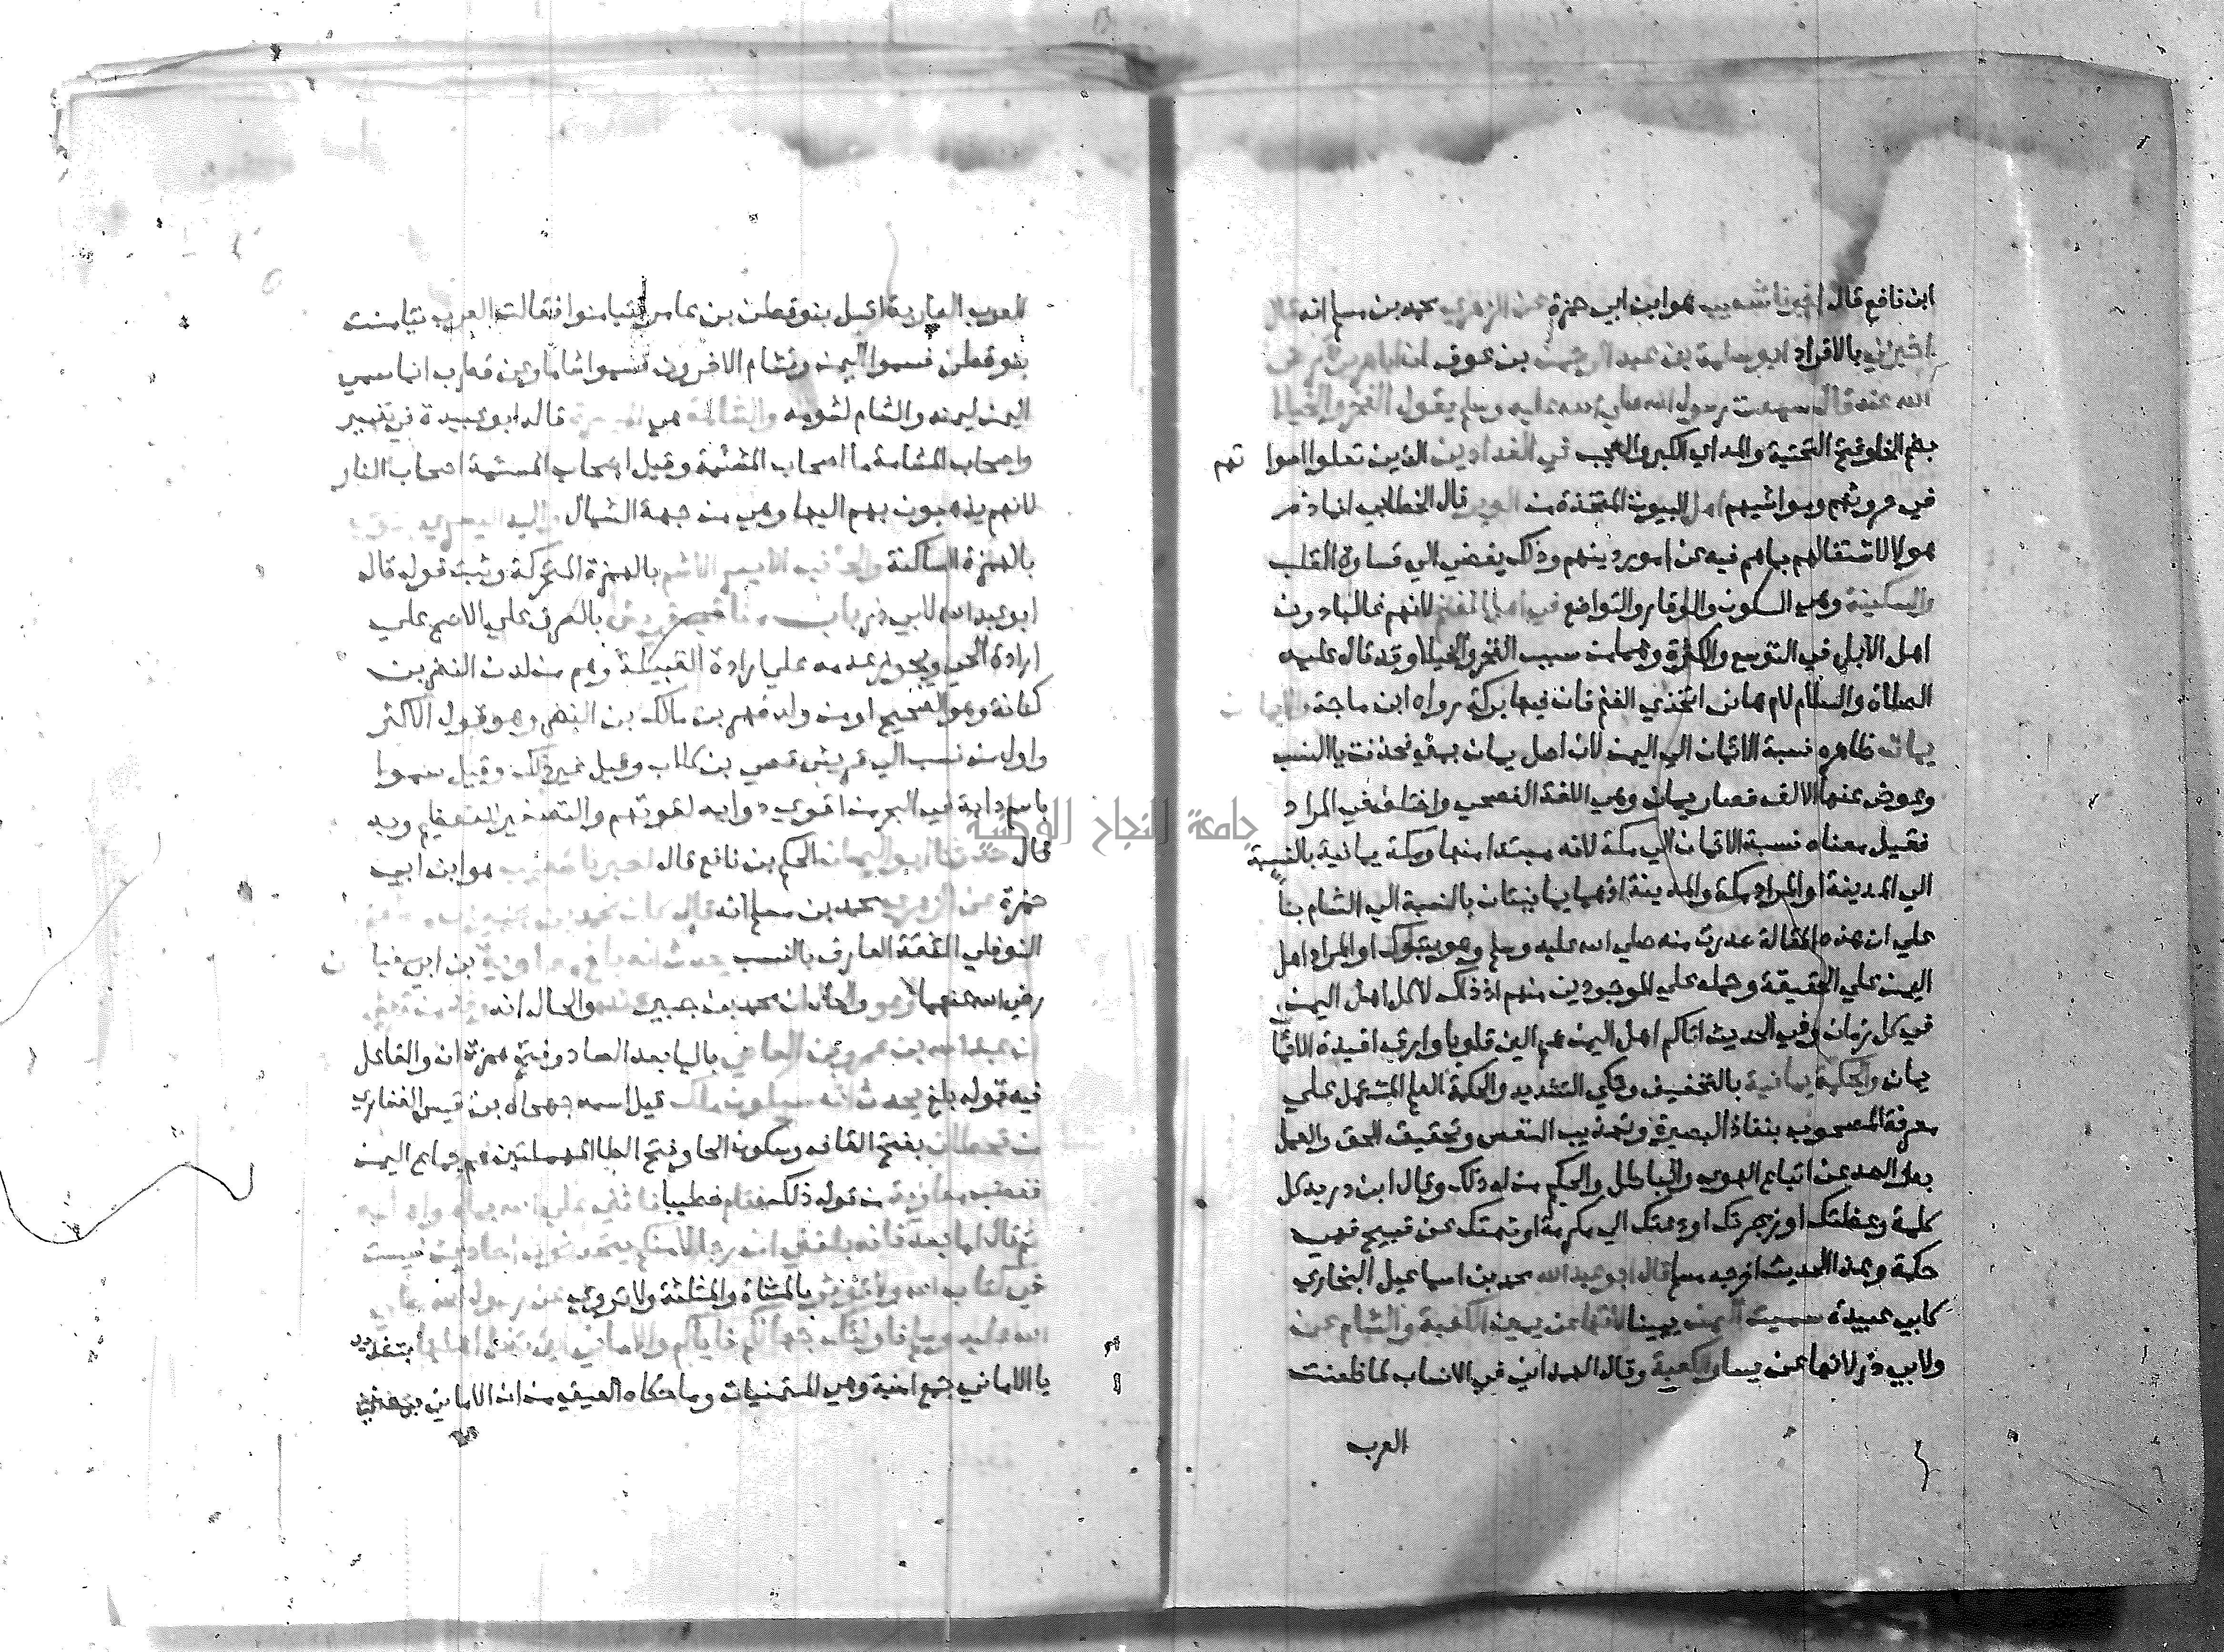 ابن نافع قال اخبرنا شعيب هو ابن ابي حمزة عن الزهري محمد بن مسلم انه قال
اخبرني بالافراد ابو سلمة بن عبد الرحمن بن عوف ان ابا هريرة رضي
الله عنه قال سمعت رسول الله صلي الله عليه وسلم يقول الفخر والخيلا
بضم الخا وفتح التحتية والمد اي الكبر والعجب في الفدادين الذين تعلوا اصوا تهم
في حروثهم ومواشيهم اهل البيوت المتخذة من الوبر قال الخطابي انما ذم
هولا لاشتغالهم بما هم فيه عن امور دينهم وذلك يفضي الي قساوة القلب
والسكينة وهي السكون والوقار والتواضع في اهل الغنم لانهم غالبا دون
اهل الابل في التوسع والكثرة وهما من سبب الفخر والخيلا وقد قال عليه
الصلاة والسلام لام هاني اتخذي الغنم فان فيها بركة رواه ابن ماجة والايمان
يمان ظاهره نسبة الايمان الي اليمن لان اصل يمان يمني فحذفت يا النسب
وعوض عنها الالف فصار يمان وهي اللغة الفصحي واختلف في المراد
فقيل معناه نسبة الايمان الي مكة لانه مبتدا منها ومكة يمانية بالنسبة
الي المدينة او المراد مكة والمدينة اذ هما يمانيتان بالنسبة الي الشام بنا
علي ان هذه المقالة صدرت منه صلي الله عليه وسلم وهو بتبوك او المراد اهل
اليمن علي الحقيقة وحمله علي الموجودين منهم اذ ذاك لا كل اهل اليمن
في كل زمان وفي الحديث اتاكم اهل اليمن هم الين قلوبا وارق افيدة الايما
يمان والحكمة يمانية بالتخفيف وحكي التشديد والحكمة العلم المشتمل علي
معرفة المصحوب بنفاذ البصيرة وتهذيب النفس وتحقيق الحق والعمل
به والصد عن اتباع الهوي والباطل والحكيم من له ذلك وقال ابن دريد كل
كلمة وعظتك او زجرتك او دعتك الي مكرمة او نهتك عن قبيح فهي
حكمة وهذا الحديث اخرجه مسلم قال ابو عبد الله محمد بن اسماعيل البخاري
كابي عبيدة سميت اليمن يمينا لانها عن يمين الكعبة والشام عن
ولابي ذر لانها عن يسار الكعبة وقال الهمداني في الانساب لما ظعنت
العرب
العرب العاربة اقبل بنو قطن بن عامر فتيامنوا فقالت العرب تيامنت
بنو قطن فسموا اليمن وتشام الاخرون فسموا شاما وعن قطرب انما سمي
اليمن ليمنه والشام لشومه والمشامة هي الميسرة قاله ابو عبيدة في تفسير
واصحاب المشامة ما اصحاب المشئمة وقيل اصحاب المشئمة اصحاب النار
لانهم يذهبون بهم اليها وهي من جهة الشمال واليد اليسري
بالهمزة الساكنة والجانب الايسر الاشام بالهمزة المتحركة وثبت قوله قال
ابو عبد الله لابي ذر باب مناقب قريش بالصرف علي الاصح علي
ارادة الحي ويجوز عدمه علي ارادة القبيلة وهم من ولد النضر بن
كنانة وهو الصحيح او من ولد فهر بن مالك بن النضر وهو قول الاكثر
واول من نسب الي قريش قصي بن كلاب وقيل غير ذلك وقيل سموا
باسم دابة في البحر من اقوي دوابه لقوتهم والتصغير للتعظيم وبه
قال حدثنا ابو اليمان الحكم بن نافع قال اخبرنا شعيب هو ابن ابي
حمزة عن الزهري محمد بن مسلم انه قال كان محمد بن جبير
النوفلي الثقة العارف بالنسب يحدث انه بلغ معاوية بن ابي سفيا ن
رضي الله عنهما وهو والحال ان محمد بن جبير عنده والحال انه
ان عبد الله بن عمرو بن العاصي باليا بعد الصاد وفتح همزة ان والفاعل
فيه قوله بلغ يحدث انه سيكون ملك قيل اسمه جهجاه بن قيس الغفاري
من قحطان بفتح القاف وسكون الحا وفتح الطا المهملتين هم جماع اليمن
فغضب معاوية من قوله ذلك فقام خطيبا فاثني علي الله بما هو اهله
ثم قال اما بعد فانه بلغني ان رجالا منكم يتحدثون احاديث ليست
في كتاب الله ولا تؤثر بالمثناة والمثلثة ولا تروي عن رسول الله صلي
الله عليه وسلم فاوليك جهالكم فاياكم والاماني التي تضل اهلها بتشديد
يا الاماني جمع امنية وهي المتمنيات وما حكاه العيني من ان الاماني
جامعة النجاح الوطنية